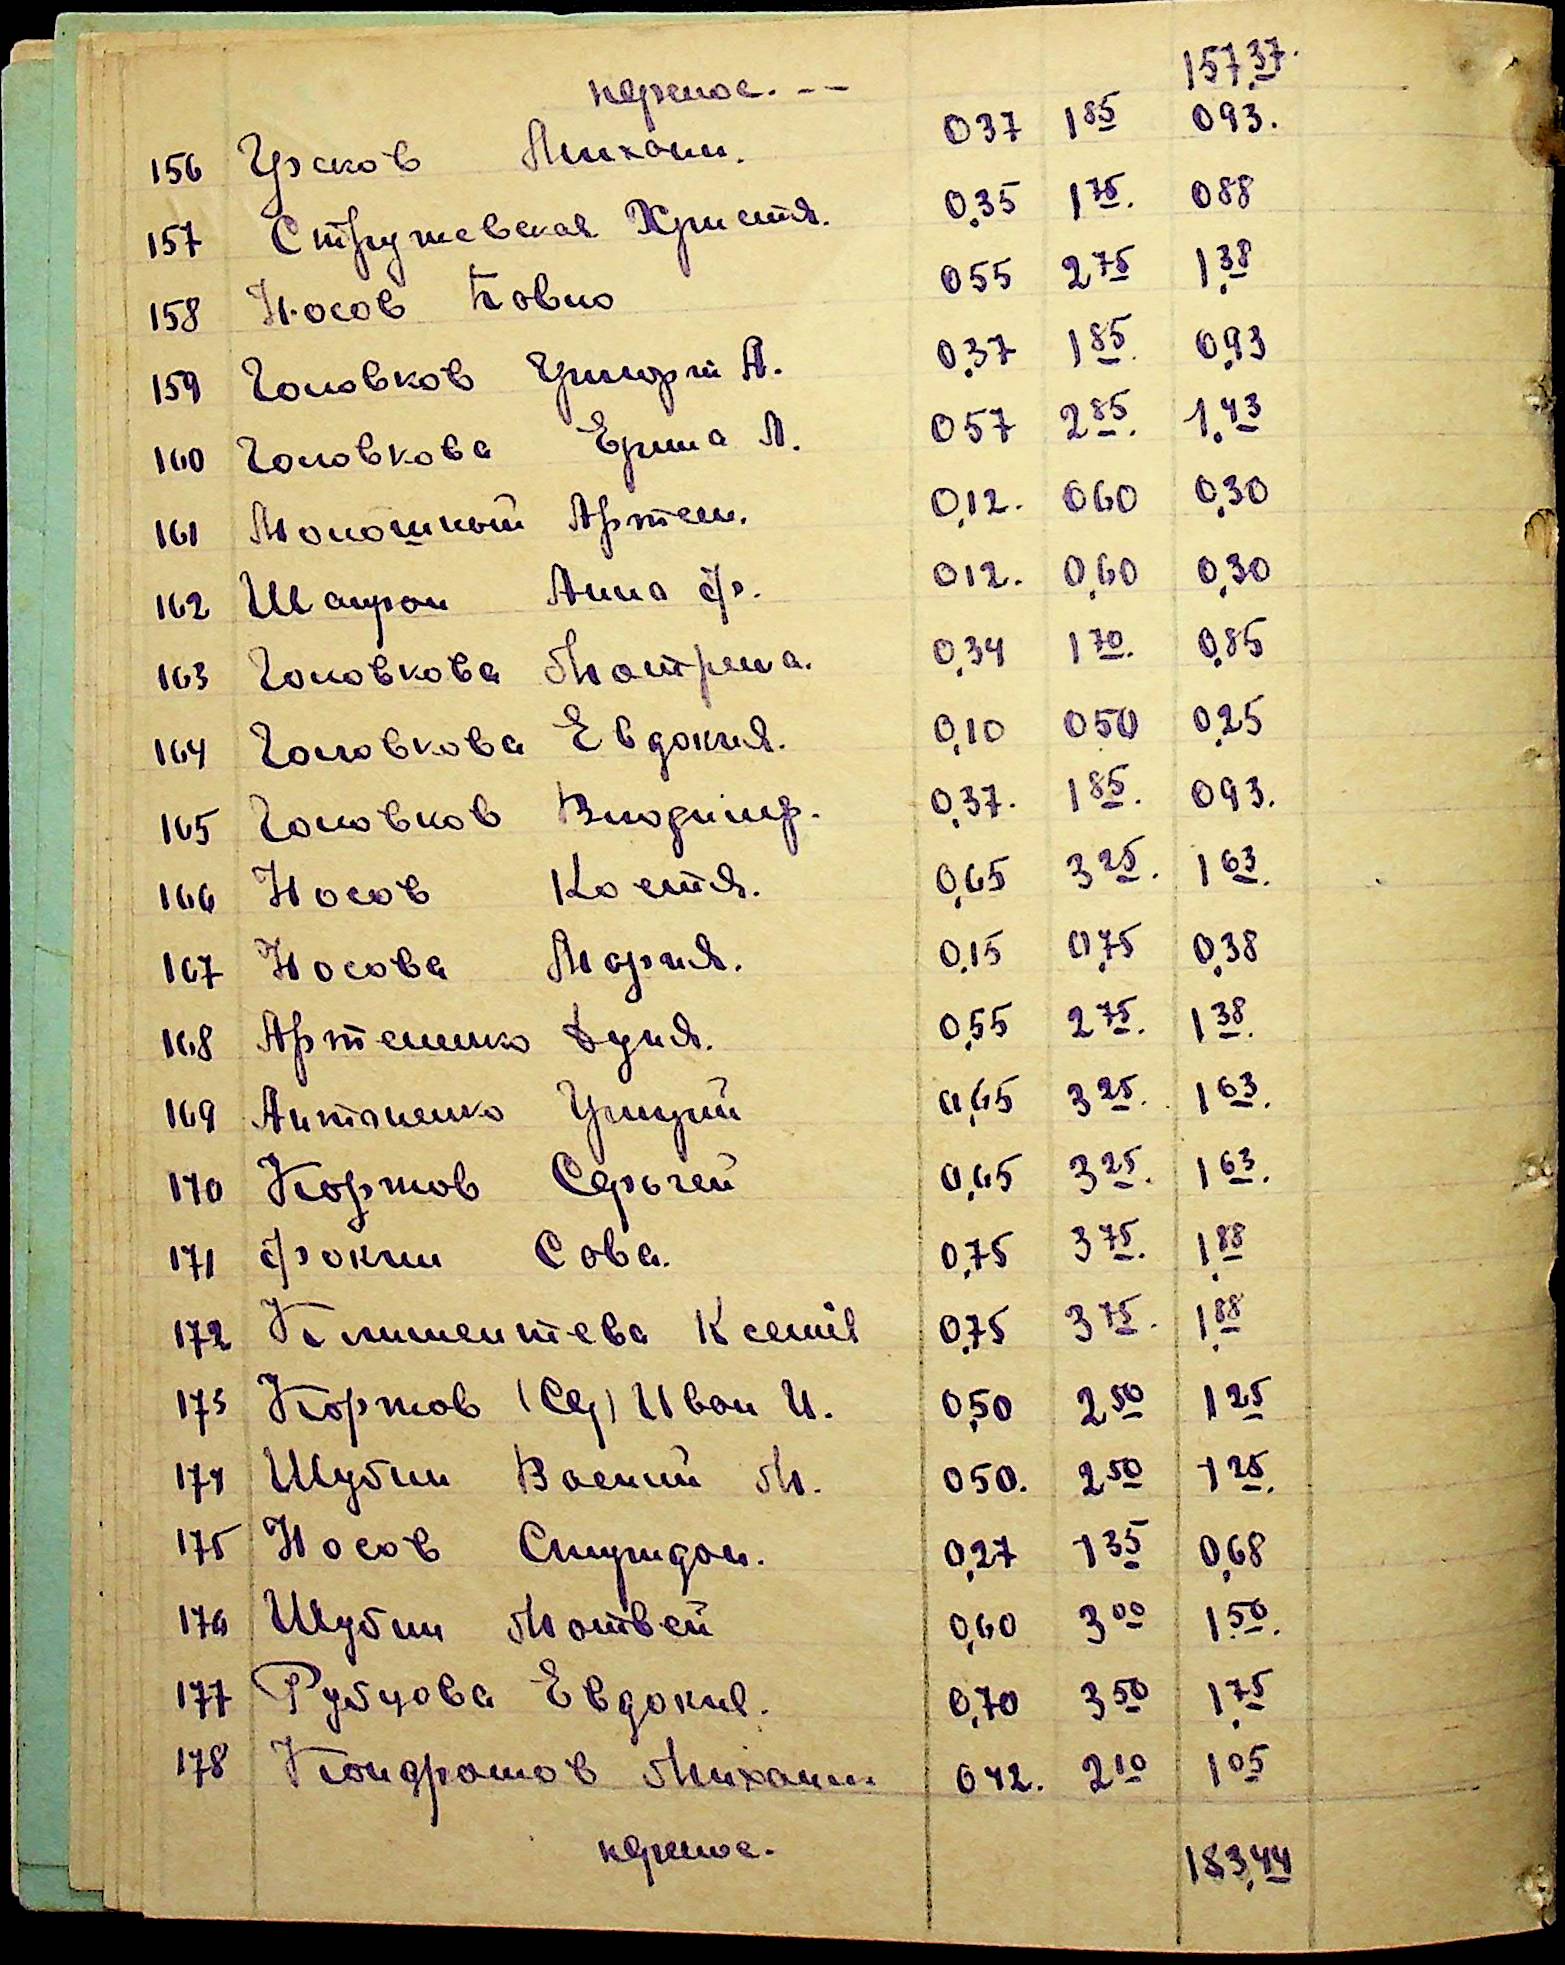 перенос. -- 157,37.
156 Гусков Михаил. 037 1 85 093.
157 Стружевская Христя. 0,35 1 75. 088
158 Носов Павло 055 2 75 1,38
159 Головков Григорий А. 0,37 1 85. 0,93
160 Головкова Ерина А. 057 2 85. 1,43
161 Молошный Артем. 0,12. 060 0,30
162 Шапрон Анна Ф. 012. 0,60 0,30
163 Головкова Мотрена. 0,34 1 70. 0,85
164 Головкова Евдокия. 0,10 050 0,25
165 Головков Владимир. 0,37. 1 85. 093.
166 Носов Костя. 0,65 3 25. 1 63.
167 Носова Мария. 0,15 0,75 0,38
168 Артеменко Дуня. 0,55 2 75. 1 38.
169 Антоненко Грицый 0,65 3 25. 1 63.
170 Коржов Серьгей 0,65 3 25. 1 63.
171 Фокин Сава. 0,75 3 75. 1,88
172 Климентева Ксения 0,75 3 75. 1,88
173 Коржов (Сер) Иван И. 0,50 2 50 1 25
174 Шубин Васний М. 050. 2 50 1 25.
175 Носов Спиридон. 0,27 1 35 0,68
176 Шубин Мотвей 0,60 3 00 1 50.
177 Рубцова Евдокия. 0,70 3 50 1,75
178 Кондрашов Михаил. 042. 2 10 1 05
перенос. 183,44